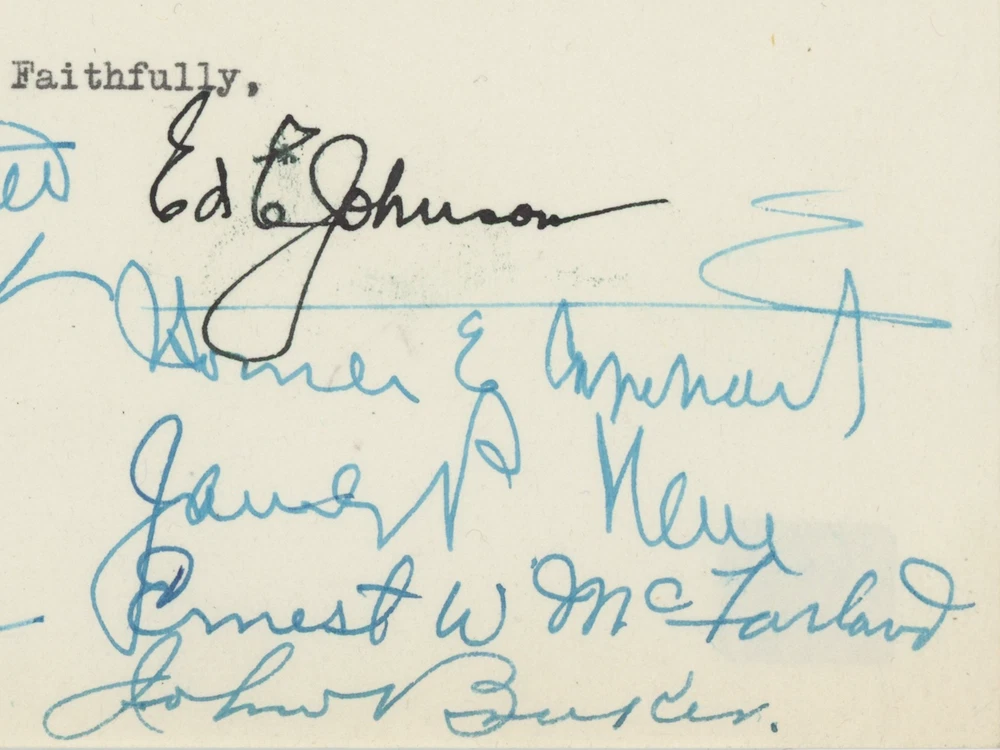 Faithfully,
Ed C Johnson
Homer E Capehart
James P Kem
Ernest W McFarland
John Bricker.